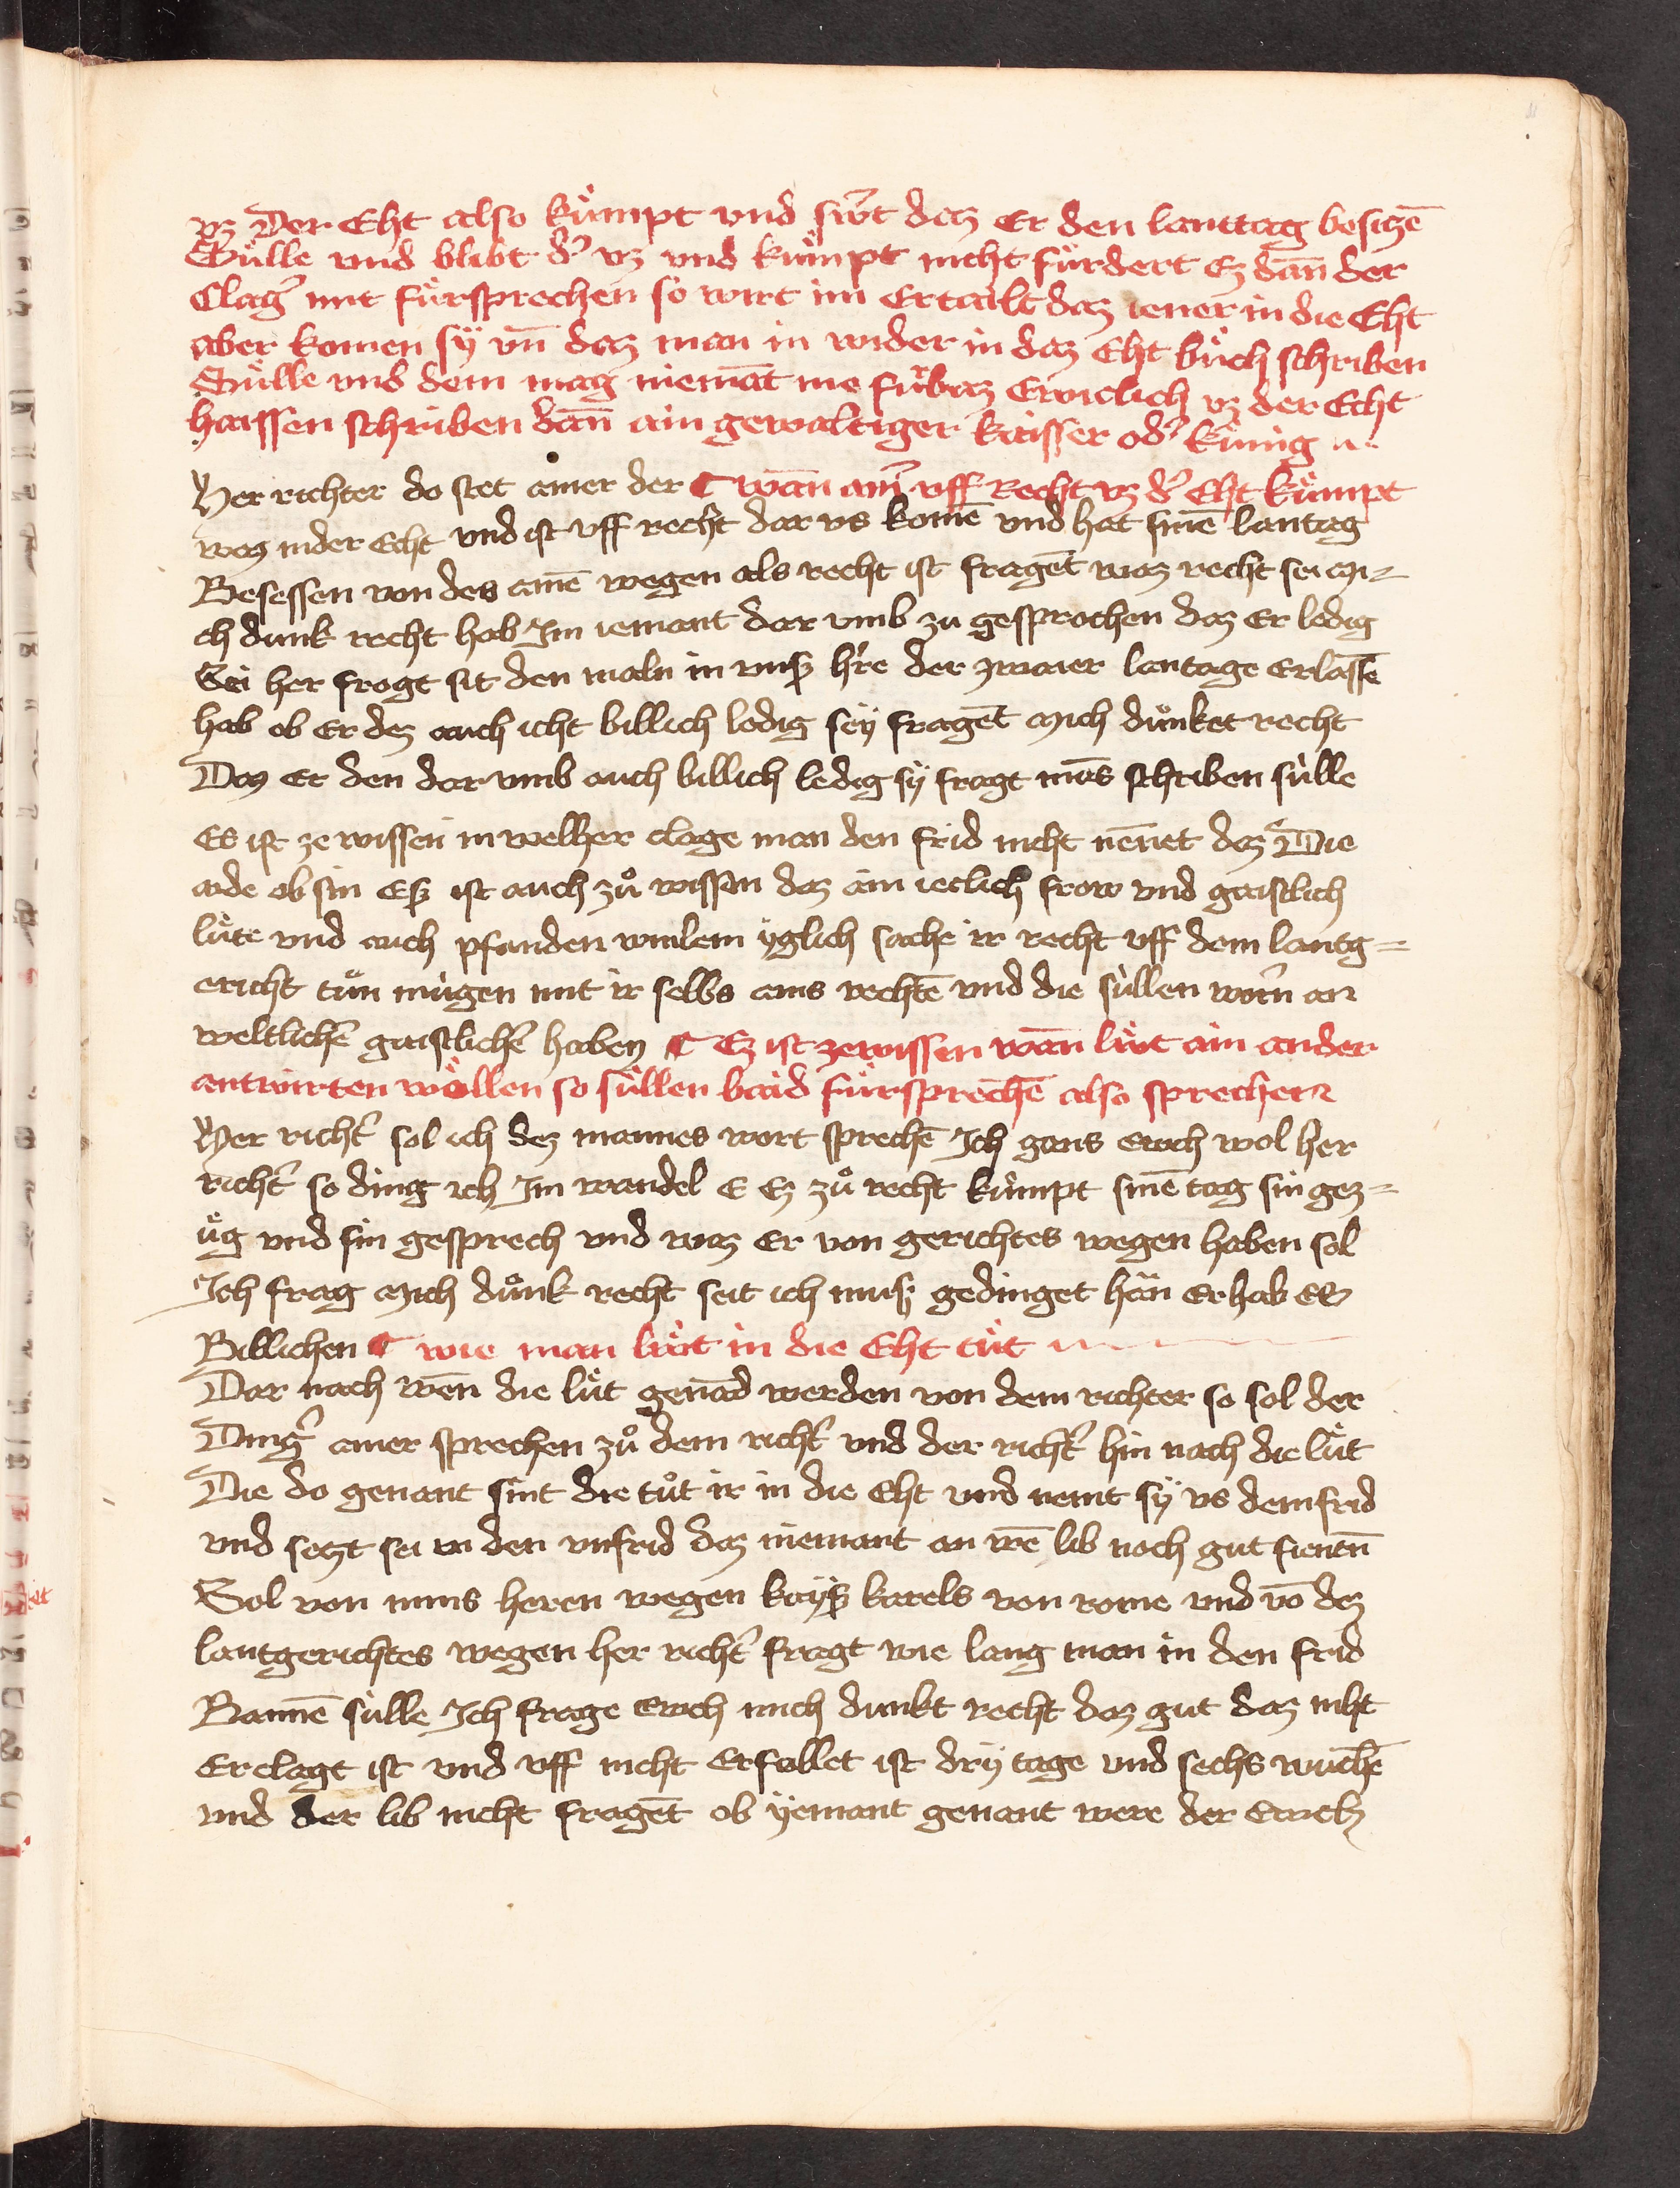 vz Der Eht also kümpt vnd swͦt daz Er den lanttag besiczē
Sülle vnd blibt d͛ vz vnd kümpt nicht fürdert Ez dān der
Clag͛ mit fürsprechen so wirt im Ertailt daz iener in die Eht
aber komen sÿ vn̄ daz man in wider in daz Eht büch schriben
Sülle vnd dem mag niemāt me fürbaz Ewiclich vz der Echt
haissen schriben dan̄ ain gewaltiger kaisser od͛ küning
Her richter do stet ainer der ¶ wān ain͛ vff Recht vz d͛ Eht kümpt
waz inder Echt vnd ist vff recht dar vs komē vnd hat sinē lantag
Besessen von des ainē wegen als recht ist fragēt waz recht sei mi=
ch dunk recht hab Im iemant dar vmb zu gesprochen daz Er ledig
Sei her frogt sit den maln in vnß h͛re der zwaier lantage Erlassē
hab ob Er dez auch icht billich ledig sÿ fragēt mich dunket recht
Daz Er den dar vmb auch billich ledig sÿ fragt mās schriben sülle
Es ist ze wissen in welher clage man den frid nicht nēnet daz Die
aide ob sin Eß ist auch zů wissen daz ain ieclich frow vnd gaistlich
lüte vnd auch pfanden vmlem ÿglich sache ir recht vff dem lantg=
ericht tůn mügen mit ir selbs ains rechtē vnd die süllen worn an
weltlichē gaistlichē haben ¶ Ez ist zewissen wān lüt ain ander
antwürten wöllen so süllen baid fürsprechē also sprechen
Her richt͛ sol ich dez mannes wort sprechē Ich gans ewch wol her
richt͛ so ding ich Im wandel E Ez zů recht kümpt sinē tag sin gez=
üg vnd sin gesprech vnd waz Er von gerichtes wegen haben sol
Ich frag mich důnk recht seit ich mirß gedinget hän Er hab Es
Billichen ¶ wie man lüt in die Eht tüt
Dar nach wēn die lüt genād werden von dem richter so sol der
Ding͛ ainer sprechen zů dem richt͛ vnd der richt͛ hin nach die lüt
Die do genant sint die tůt ir in die Eht vnd nemt sÿ vs dem frid
vnd setzt sei in den vnfrid daz niemant an irē lib noch gut
Sol von mins heren wegen kayß karels von rome vnd vō dez
lantgerichtes wegen her richt͛ fragt wie lang man in den frid
Bannē sülle Ich frage ewch mich dunkt recht daz gut daz niht
Erclagt ist vnd vff nicht Erfollet ist drÿ tage vnd sechs wuchē
vnd der lib nicht fragēt ob ÿemant genant were der